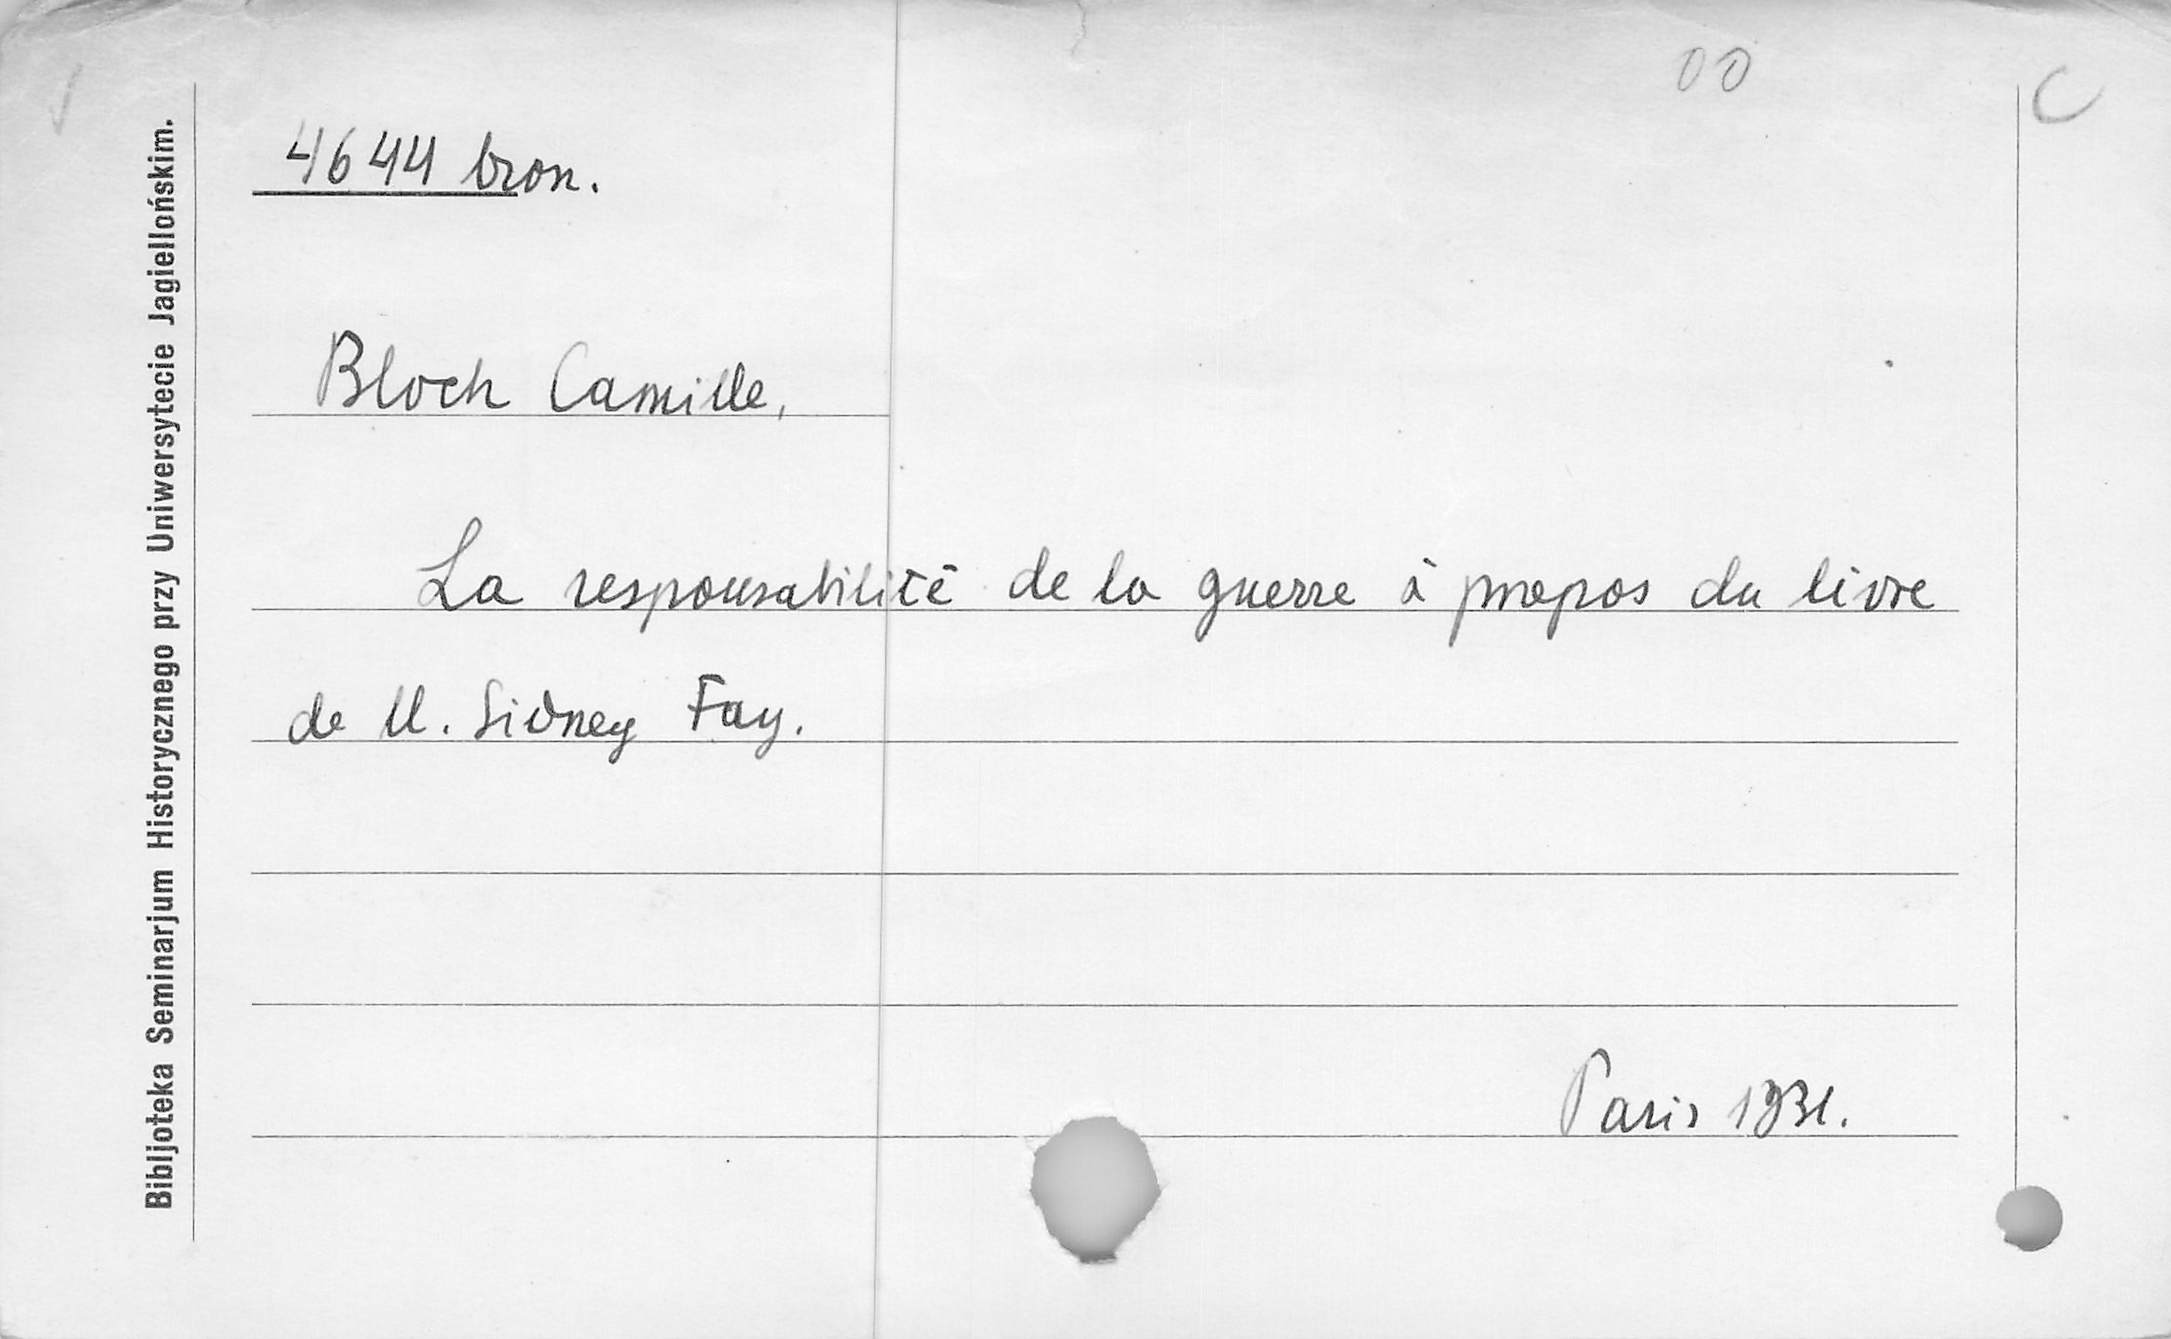 00 C
4644 bron.
Bloch Camille,
La responsabilité de la guerre à propos du livre
de M. Sidney Fay.
Paris 1931.
Bibljoteka Seminarjum Historycznego przy Uniwersytecie Jagiellońskim.